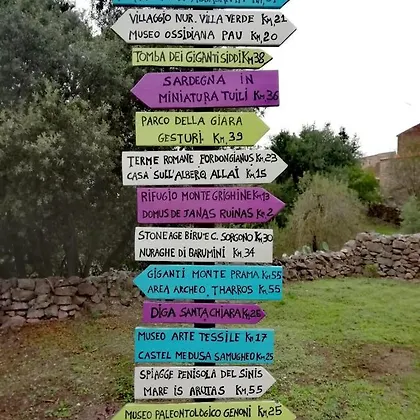 VILLAGGIO NUR. VILLA VERDE Km, 21
MUSEO OSSIDIANA PAU Km, 20
TOMBA DEI GIGANTI SIDDI Km, 38
SARDEGNA IN
MINIATURA TUILI Km, 36
PARCO DELLA GIARA
GESTURI Km, 39
TERME ROMANE FORDONGIANUS Km, 23
CASA SULL'ALBERO ALLAI Km, 15
RIFUGIO MONTE GRIGHINE Km, 13
DOMUS DE JANAS RUINAS Km, 2
STONEAGE BIRU'E C. SORGONO Km, 30
NURAGHE DI BARUMINI Km, 34
GIGANTI MONTE PRAMA Km, 55
AREA ARCHEO, THARROS Km, 55
DIGA SANTA CHIARA Km, 26
MUSEO ARTE TESSILE Km, 17
CASTEL MEDUSA SAMUGHEO Km, 25
SPIAGGE PENISOLA DEL SINIS
MARE IS ARUTAS Km, 55
MUSEO PALEONTOLOGICO GENONI Km, 25